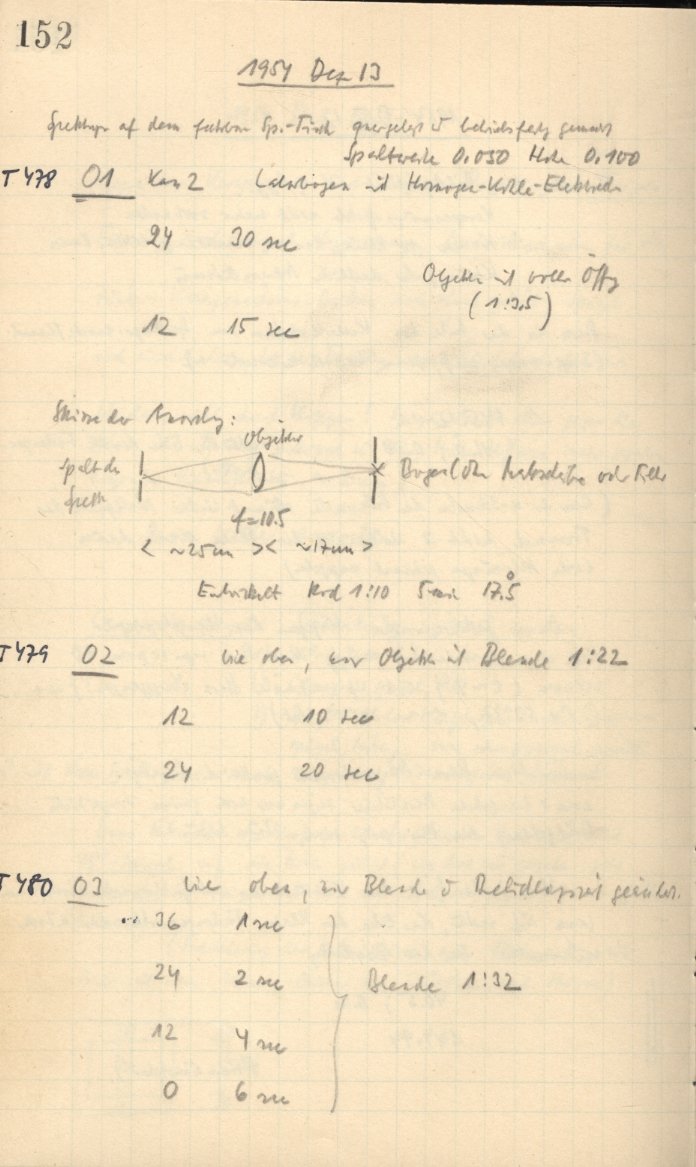 152
1954 Dez 13
auf dem Sp.-Tisch quergelegt u betriebsfertig gemacht
Spaltweite 0.030 Höhe 0.100
T 478 01 Kas 2 mit Homogen-Kohle-Elektroden
24 30 sec
Objektiv mit voller Öffng
(1:3.5)
12 15 sec
Skizze der Anordng:
Objektiv
Spalt des
Spektr
Bogen (ohne oder Filter
f=10.5
< ~25cm >< ~17cm >
Entwickelt Rod 1:10 5 min 17.5°
T 479 02 wie oben, nur Objektiv mit Blende 1:22
12 10 sec
24 20 sec
T 480 03 wie oben, nur Blende u Belichtungszeit geändert.
36 1 sec
24 2 sec
Blende 1:32
12 4 sec
0 6 sec